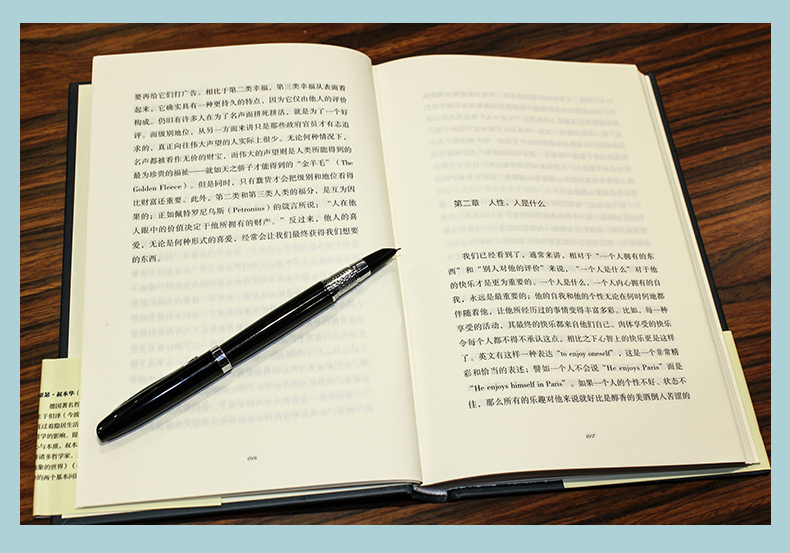 要再给它们打广告。相比于第二类幸福，第三类幸福从表面看
起来，它确实具有一种更持久的特点，因为它仅由他人的评价
构成。仍旧有许多人在为了名声而拼死拼活，就是为了一个好
评。而级别地位，从另一方面来讲只是那些政府官员才有志追
求的，真正向往伟大声望的人实际上很少。无论何种情况下，
名声都被看作无价的财宝，而伟大的声望则是人类所能得到的
最为珍贵的福祉——就如天之骄子才能得到的“金羊毛”（The
Golden Fleece）。但是同时，只有蠢货才会把级别和地位看得
比财富还重要。此外，第二类和第三类人类的福分，是互为因
果的；正如佩特罗尼乌斯（Petronius）的箴言所说：“人在他
人眼中的价值决定于他所拥有的财产。”反过来，他人的喜
爱，无论是何种形式的喜爱，经常会让我们最终获得我们想要
的东西。
016
第二章 人性，人是什么
我们已经看到了，通常来讲，相对于“一个人拥有的东
西”和“别人对他的评价”来说，“一个人是什么”对于他
的快乐才是更为重要的。一个人是什么，一个人内心拥有的自
我，永远是最重要的；他的自我和他的个性无论在何时何地都
伴随着他，让他所经历过的事情变得丰富多彩。比如，每一种
享受的活动，其最终的快乐都来自他们自己。肉体享受的快乐
令每个人都不得不承认这点，相比之下心智上的快乐更是这样
了。英文有这样一种表达“to enjoy oneself”，这是一个非常精
彩和恰当的表述；譬如一个人不会说“He enjoys Paris”而是
“He enjoys himself in Paris”。如果一个人的个性不好、状态不
佳，那么所有的乐趣对他来说就好比是醇香的美酒倒入苦涩的
017
瑟·叔本华
德国著名哲
于但泽（今波
过着隐居生活
学的影响，提
与本质。叔本
诸多哲学家，
象的世界》《
的两个基本问